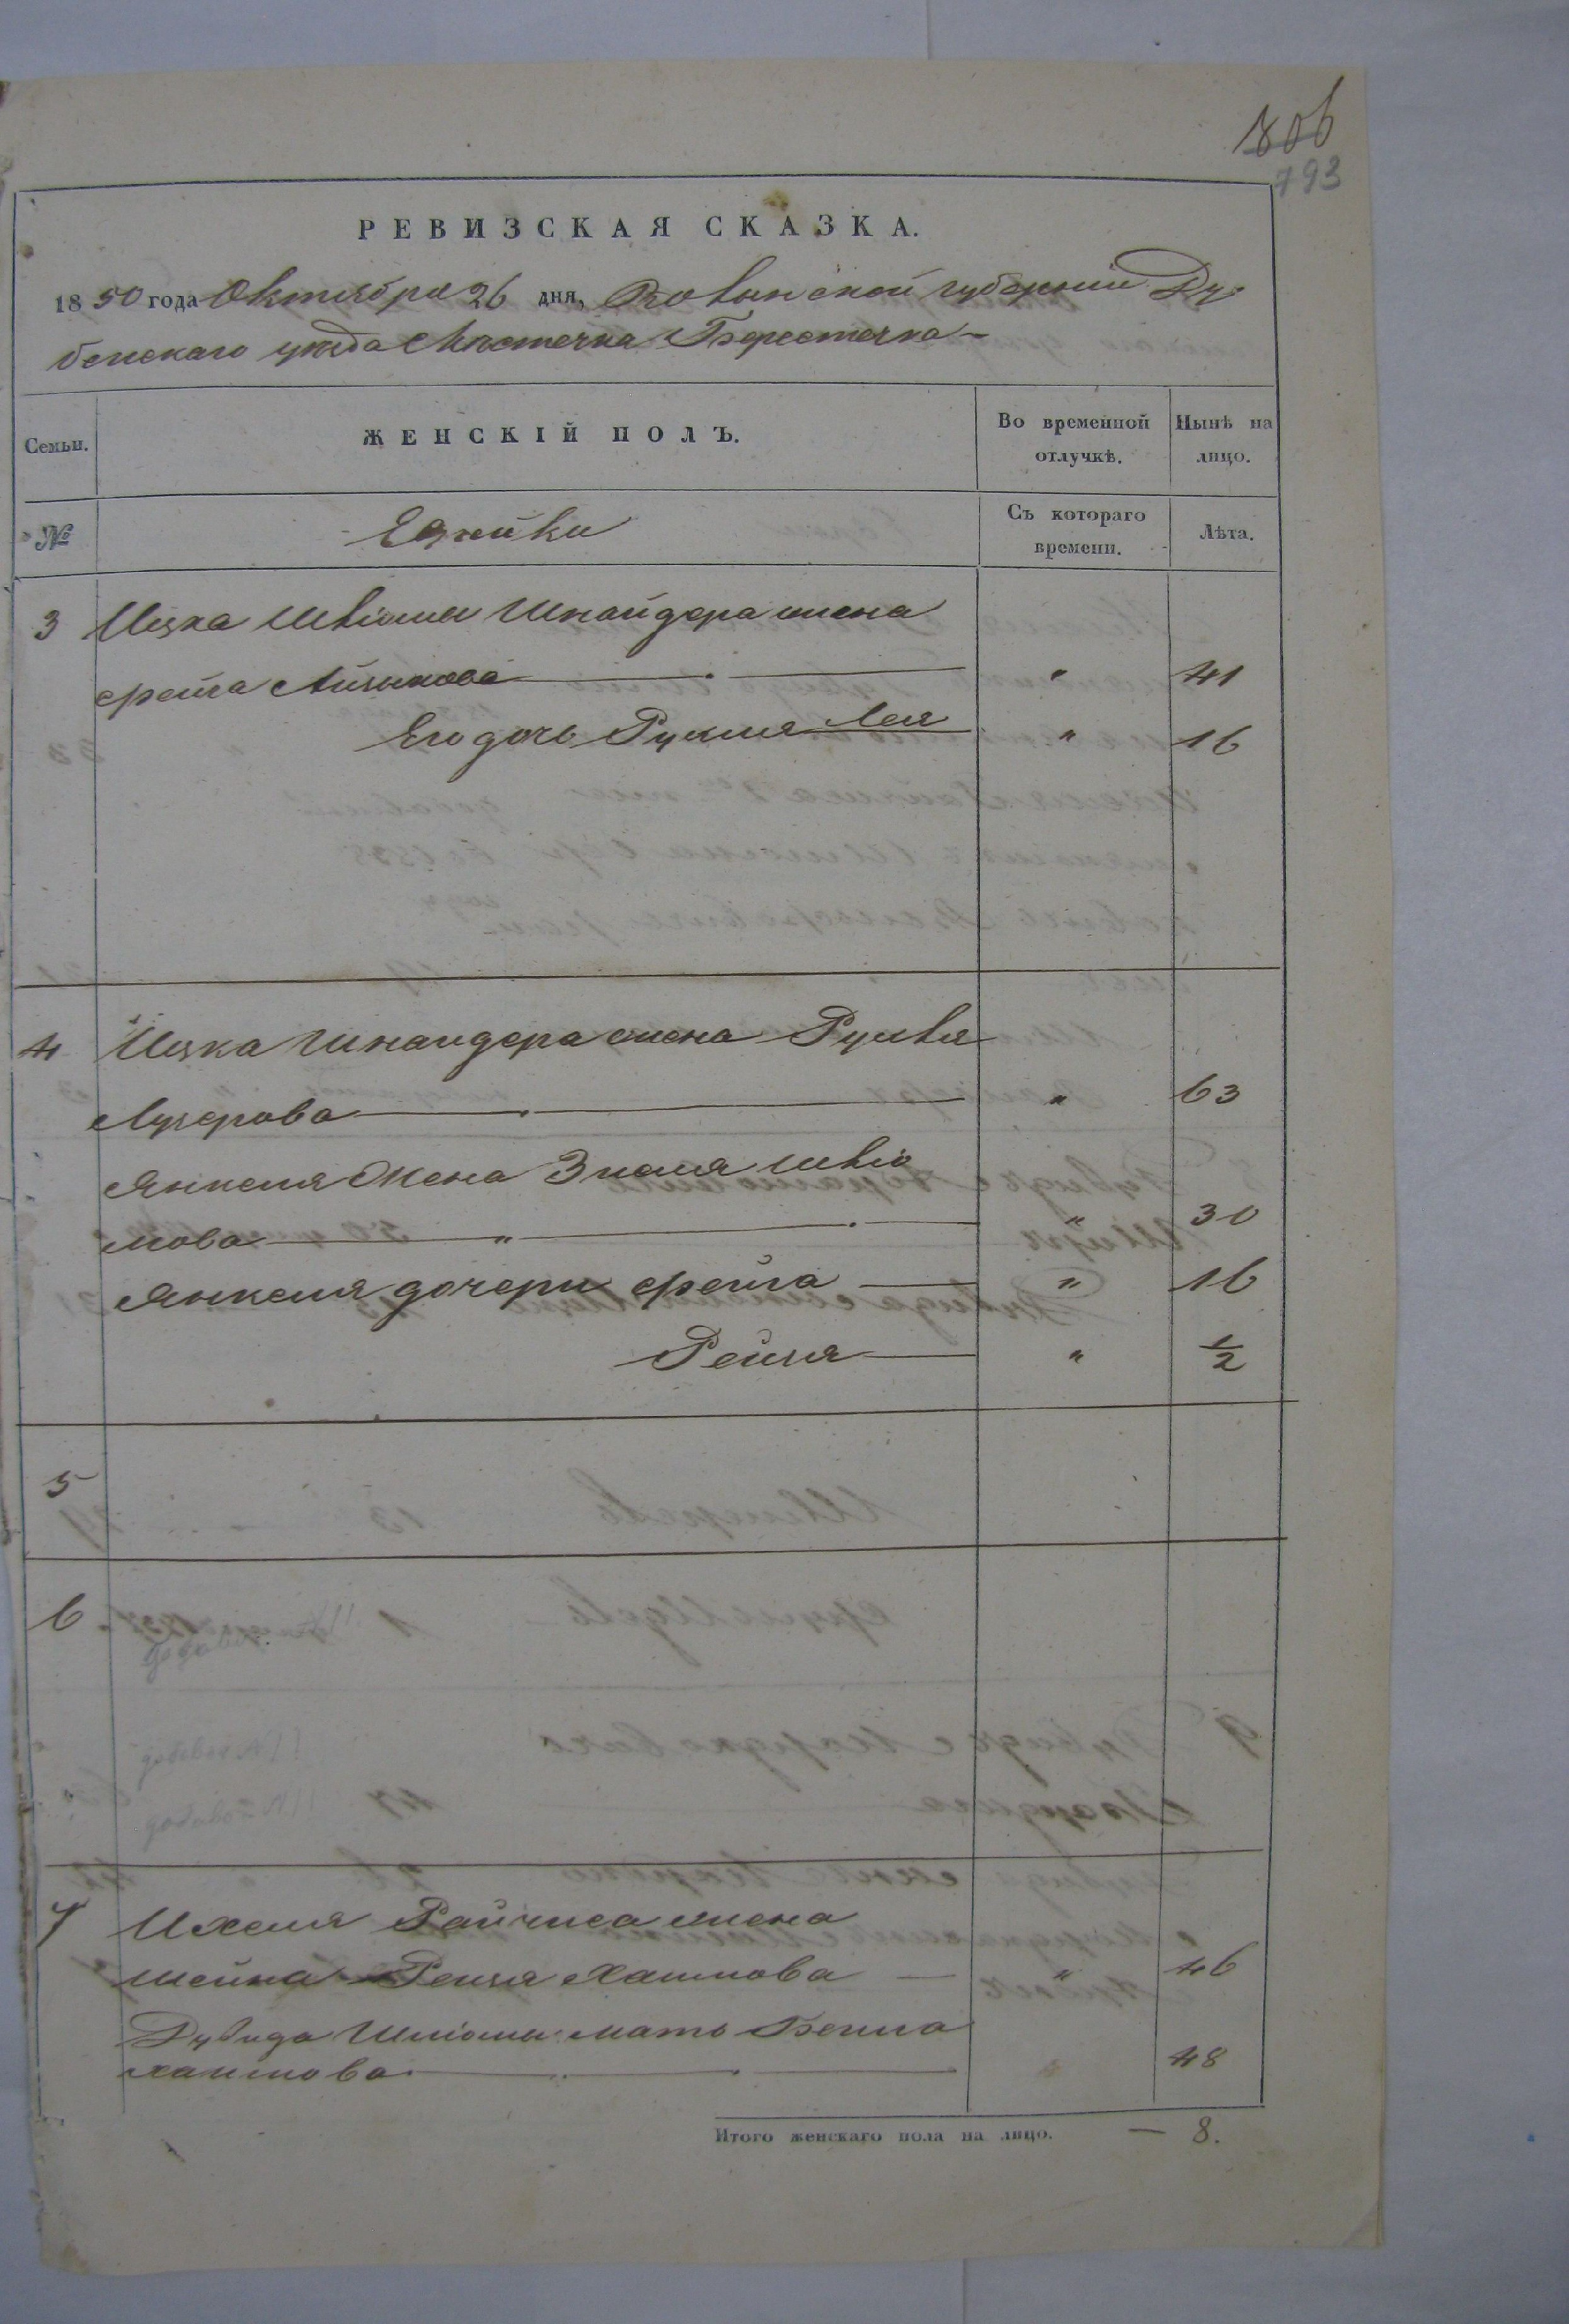 806
793
РЕВИЗСКАЯ СКАЗКА.
1850 года Октября 26 дня, Волынской губерніи Ду-
бенскаго уѣзда Мѣстечка Берестечка
Семьи.
ЖЕНСКІЙ ПОЛЪ.
Во временной отлучкѣ.
Нынѣ на лицо.
№
Еврейки
Съ котораго времени.
Лѣта.
3 Ицка Шлiомы Шнайдера жена
Фейга Айзикова " 41
Его дочь Рухля Лея " 16
4 Ицка Шнайдера жена Рухля
Лузерова " 63
Янкеля жена Зисля Шлiо
мова " " 30
Янкеля дочери Фейга " 16
Рейзя " ½
5
6
7 Ихеля жена
Шейна Рейзя Хаимова " 46
Дувида Шлiомы мать Бейла
Хаимова 48
Итого женскаго пола на лицо. — 8.